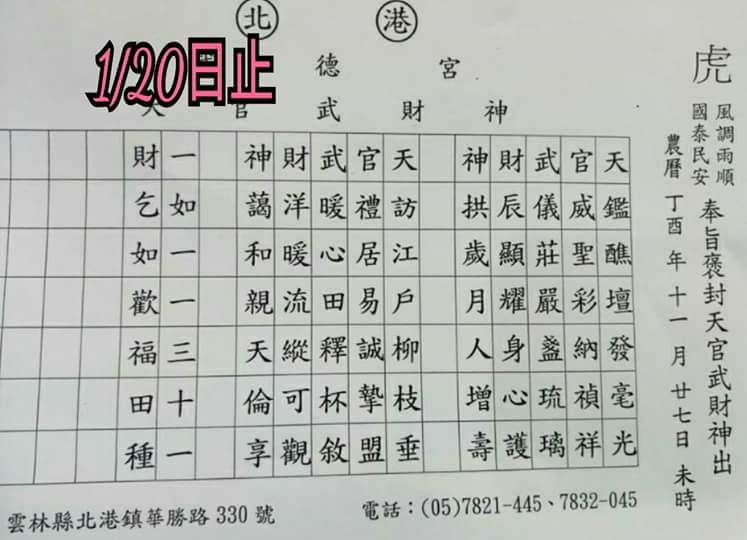 北港
德宮
1/20日止
天官武財神
虎
風調雨順
國泰民安
奉旨褒封天官武財神出
農曆丁酉年十一月廿七日未時
天鑑醮壇發毫光
官威聖彩納禎祥
武儀莊嚴盞琉璃
財辰顯耀身心護
神拱歲月人增壽
天訪江戶柳枝垂
官禮居易誠摯盟
武暖心田釋杯敘
財洋暖流縱可觀
神藹和親天倫享
一如一一三十一
財乞如歡福田種
雲林縣北港鎮華勝路 330 號
電話：(05)7821-445、7832-045